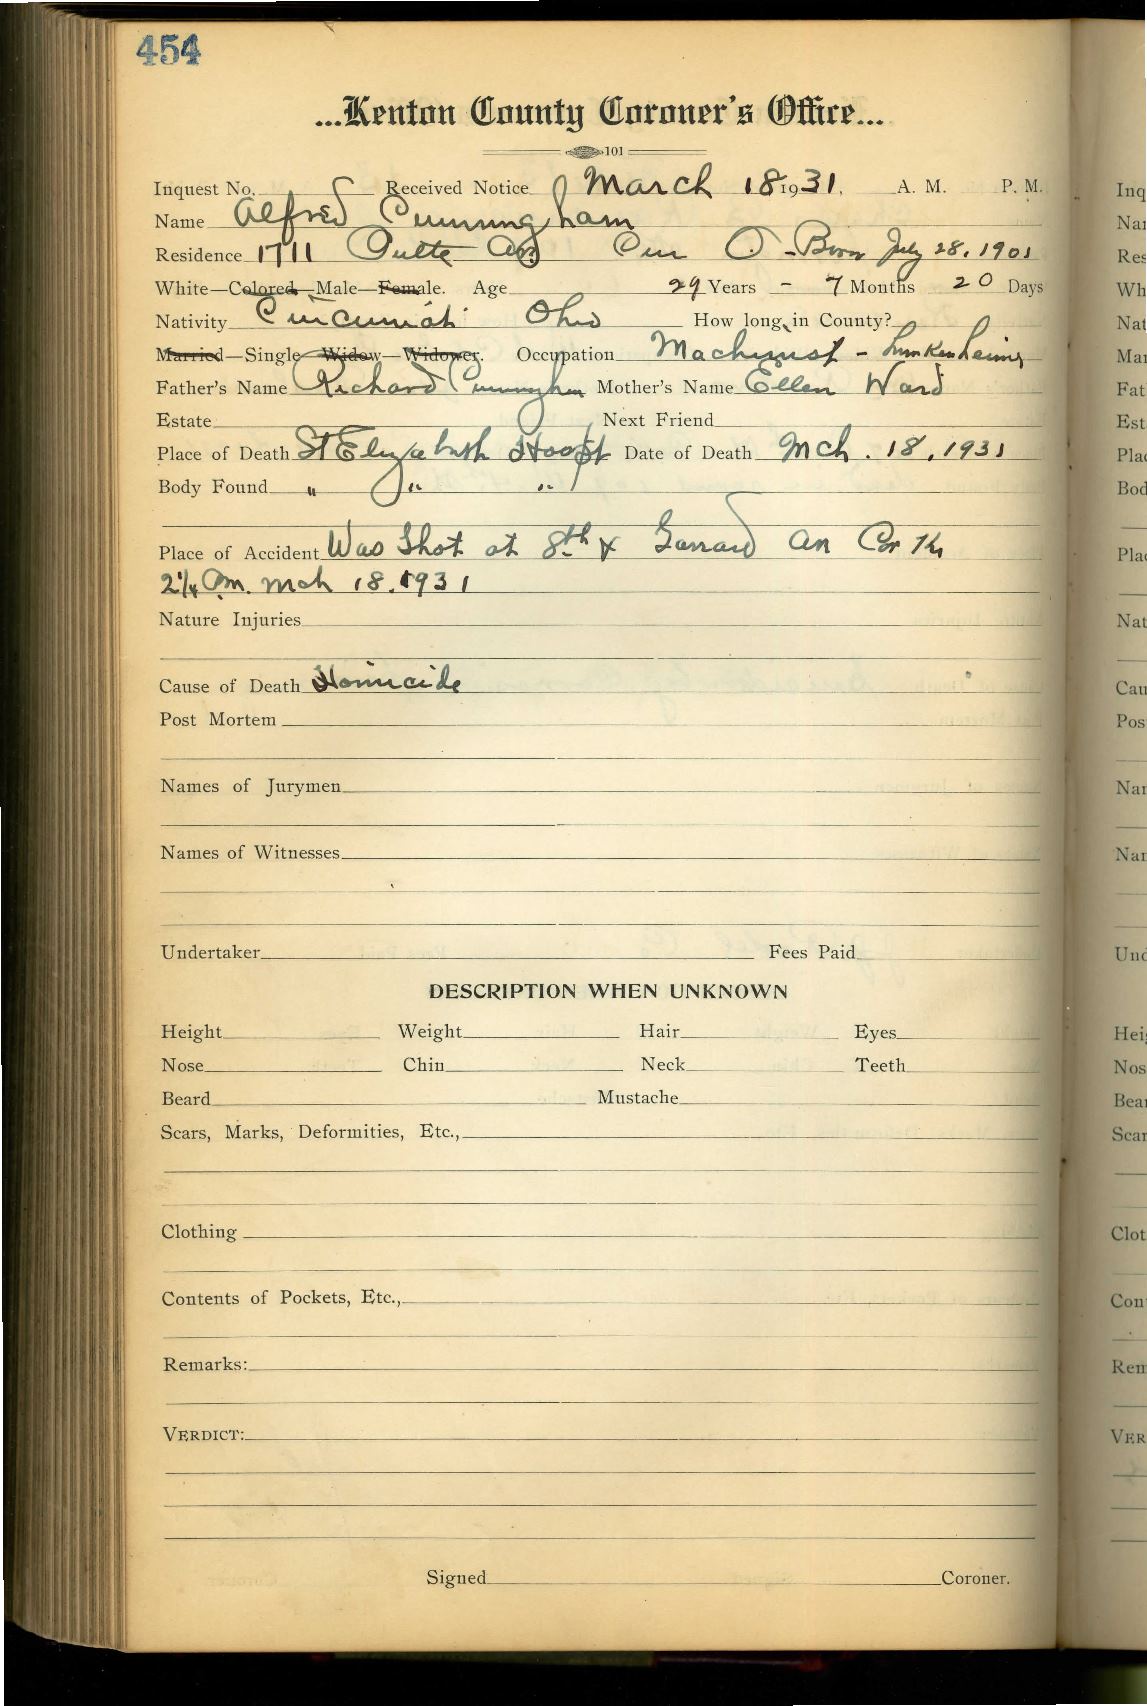 454
...Kenton County Coroner's Office...
101
Inquest No. Received Notice March 18 1931. A. M. P. M.
Name Alfred Cunningham
Residence 1711 Pulte Av Cin O - Born July 28, 1901
White—Colored—Male—Female. Age 29 Years - 7 Months 20 Days
Nativity Cincinnati Ohio How long in County?
Married—Single—Widow—Widower. Occupation Machinist - Lunkenheimer
Father's Name Richard Cunningham Mother's Name Ellen Ward
Estate Next Friend
Place of Death St Elizabeth Hospt Date of Death Mch. 18, 1931
Body Found " " "
Place of Accident Was Shot at 8th & Garrard Av Cov Ky
2 1/4 Am. Mch 18, 1931
Nature Injuries
Cause of Death Homicide
Post Mortem
Names of Jurymen
Names of Witnesses
Undertaker Fees Paid
DESCRIPTION WHEN UNKNOWN
Height Weight Hair Eyes
Nose Chin Neck Teeth
Beard Mustache
Scars, Marks, Deformities, Etc.,
Clothing
Contents of Pockets, Etc.,
Remarks:
VERDICT:
Signed Coroner.